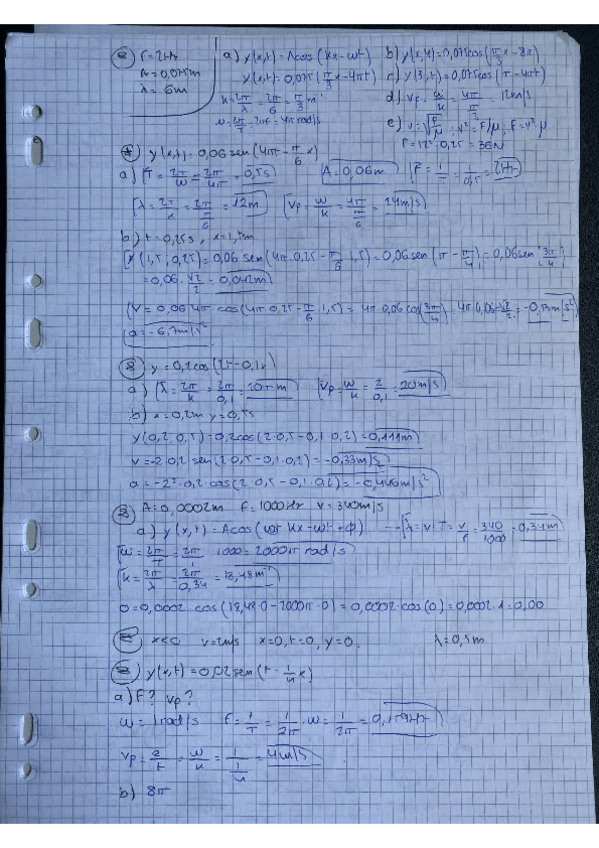 f = 2Hz
A = 0,075m
λ = 6m
a) y(x,t) = A cos(kx - ωt)
y(x,t) = 0,075 (π/3 x - 4πt)
k = 2π/λ = 2π/6 = π/3 m⁻¹
= 2πf = 4π rad/s
c) y(3,t) = 0,075 cos(π - 4πt)
d) Vp = ω/k = 4π/(π/3) = 12m/s
e) v = √(F/μ) ; v² = F/μ ; F = v² μ
F = 12² 0,25 = 36N
y(x,t) = 0,06 sen(4πt - π/6 x)
a) T = 2π/ω = 2π/4π = 0,5s A = 0,06m f = 1/T = 1/0,5 = 2Hz
λ = 2π/k = 2π/(π/6) = 12m Vp = ω/k = 4π/(π/6) = 24m/s
b) t = 0,25s, x = 1,5m
(1,5; 0,25) = 0,06 sen(4π·0,25 - π/6·1,5) = 0,06 sen(π - π/4) = 0,06 sen(3π/4)
= 0,06 · √2/2 = 0,042m
V = 0,06·4π·cos(4π·0,25 - π/6·1,5) = 4π·0,06·cos(3π/4) = 4π·0,06·√2/2 =
a = -6,7m/s²
8 y = 0,2cos(2t - 0,1x)
a) λ = 2π/k = 2π/0,1 = 20π m Vp = ω/k = 2/0,1 = 20m/s
b) x = 0,2m y = 0,5s
y(0,2; 0,5) = 0,2cos(2·0,5 - 0,1·0,2) = 0,111m
v = -2·0,2·sen(2·0,5 - 0,1·0,2) = -0,33m/s
a = -2²·0,2·cos(2·0,5 - 0,1·0,2) =
A = 0,0002m F = 1000Hz v = 340m/s
a) y(x,t) = A cos(kx - ωt + φ) λ = v·T = v/f = 340/1000 = 0,34m
ω = 2π/T = 2π · 1000 = 2000π rad/s
k = 2π/λ = 2π/0,34 = 18,48m⁻¹
0 = 0,0002 cos(18,48·0 - 2000π·0) = 0,0002·cos(0) = 0,0002·1 = 0,00
x<0 v = 2m/s x=0, t=0, y=0
y(x,t) = 0,02sen(t - 1/4 x)
a) F? Vp?
ω = 1rad/s f = 1/T = 1/2π · ω = 1/2π = 0,159Hz
Vp = = ω/k = 1/(1/4) = 4m/s
b) 8π